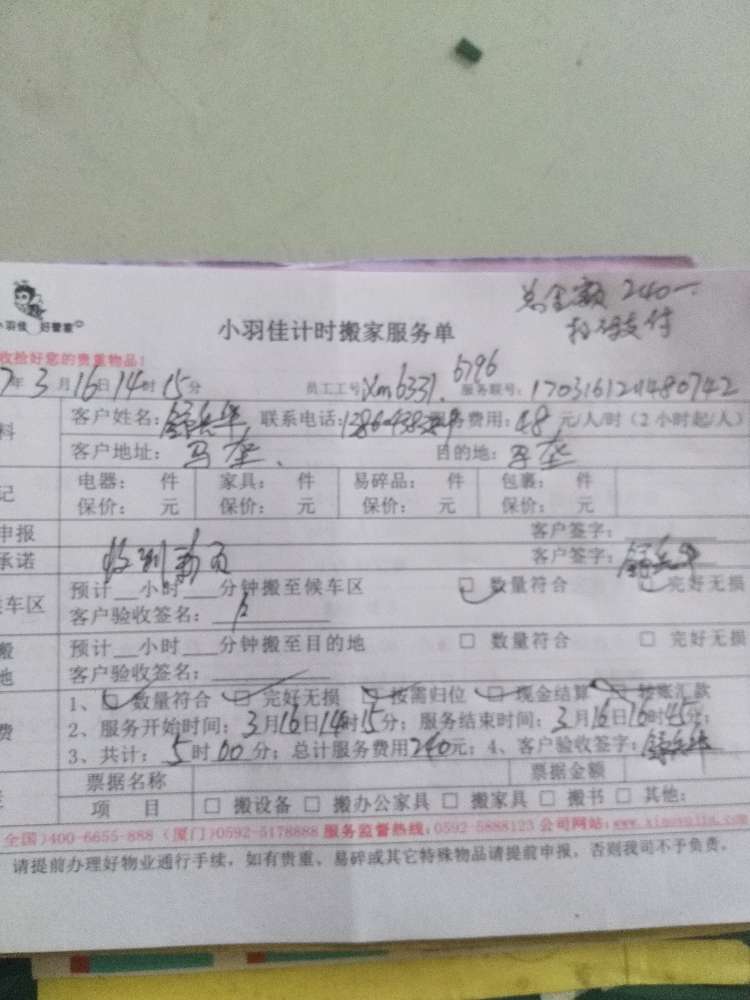 小羽佳 好管家
总金额 240一
扫码支付
小羽佳计时搬家服务单
收拾好您的贵重物品!
7年3月16日14时15分 员工工号:Xm6331. 6796 服务联号:
料 客户姓名: 联系电话: 服务费用:48元/人/时(2小时起/人)
客户地址:马垄. 目的地:马垄
记 电器: 件 家具: 件 易碎品: 件 包裹: 件
保价: 元 保价: 元 保价: 元 保价: 元
申报 客户签字:
承诺 客户签字:
候车区 预计__小时__分钟搬至候车区 □ 数量符合 □ 完好无损
客户验收签名:
搬 预计__小时__分钟搬至目的地 □ 数量符合 □ 完好无损
地 客户验收签名:
1、□ 数量符合 □ 完好无损 □ 按需归位 □ 现金结算 □ 转账汇款
费 2、服务开始时间:3月16日14时15分;服务结束时间:3月16日16时45分;
3、共计:5时00分;总计服务费用240元;4、客户验收签字:
票据名称 票据金额
项 目 □ 搬设备 □ 搬办公家具 □ 搬家具 □ 搬书 □ 其他:
全国)400-6655-888 (厦门)0592-5178888 服务监督热线:0592-5888123 公司网站:
请提前办理好物业通行手续,如有贵重、易碎或其它特殊物品请提前申报,否则我司不予负责。